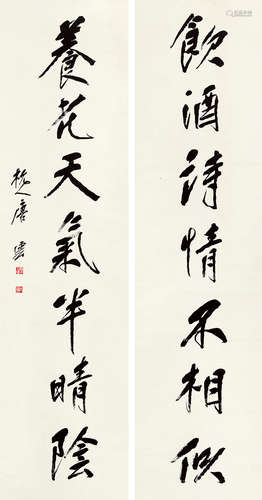 飲酒詩情不相似
養花天氣半晴陰
杭人唐雲